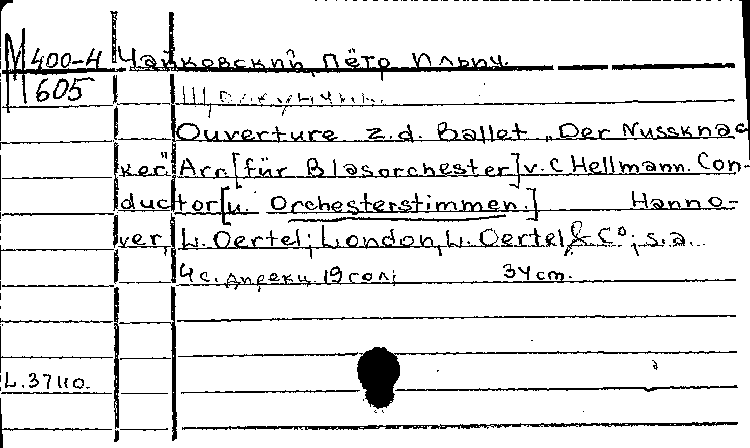 М 400-4 Чайковский, Пётр Ильич.
605 Щелкунчик.
Ouverture z.d. Ballet „Der Nusskna c
ker“ Arr. [für Blasorchester] v. C Hellmann. Con-
ductor [u. Orchesterstimmen.] Hanno-
ver, L. Oertel; London, L. Oertel & Cº; s.a.
4 с. дирекц. 19 гол; 34 cm.
L. 37110.